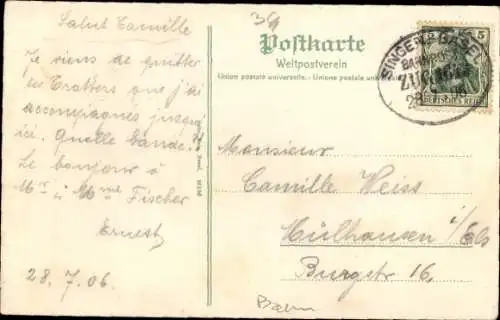 Salut Camille
Je viens de quitter
les Trotters que j'ai
accompagnés jusqu'
ici. Quelle bande!
Le bonjour à
Mr & Mme Fischer
Ernest
28.7.06.
Postkarte
Weltpostverein
Union postale universelle. - Union postale
SINGEN BASEL
BAHNPOST
ZUG
DEUTSCHES REICH
5
Monsieur
Camille Weiss
Mülhausen i/Els
Burgstr 16,